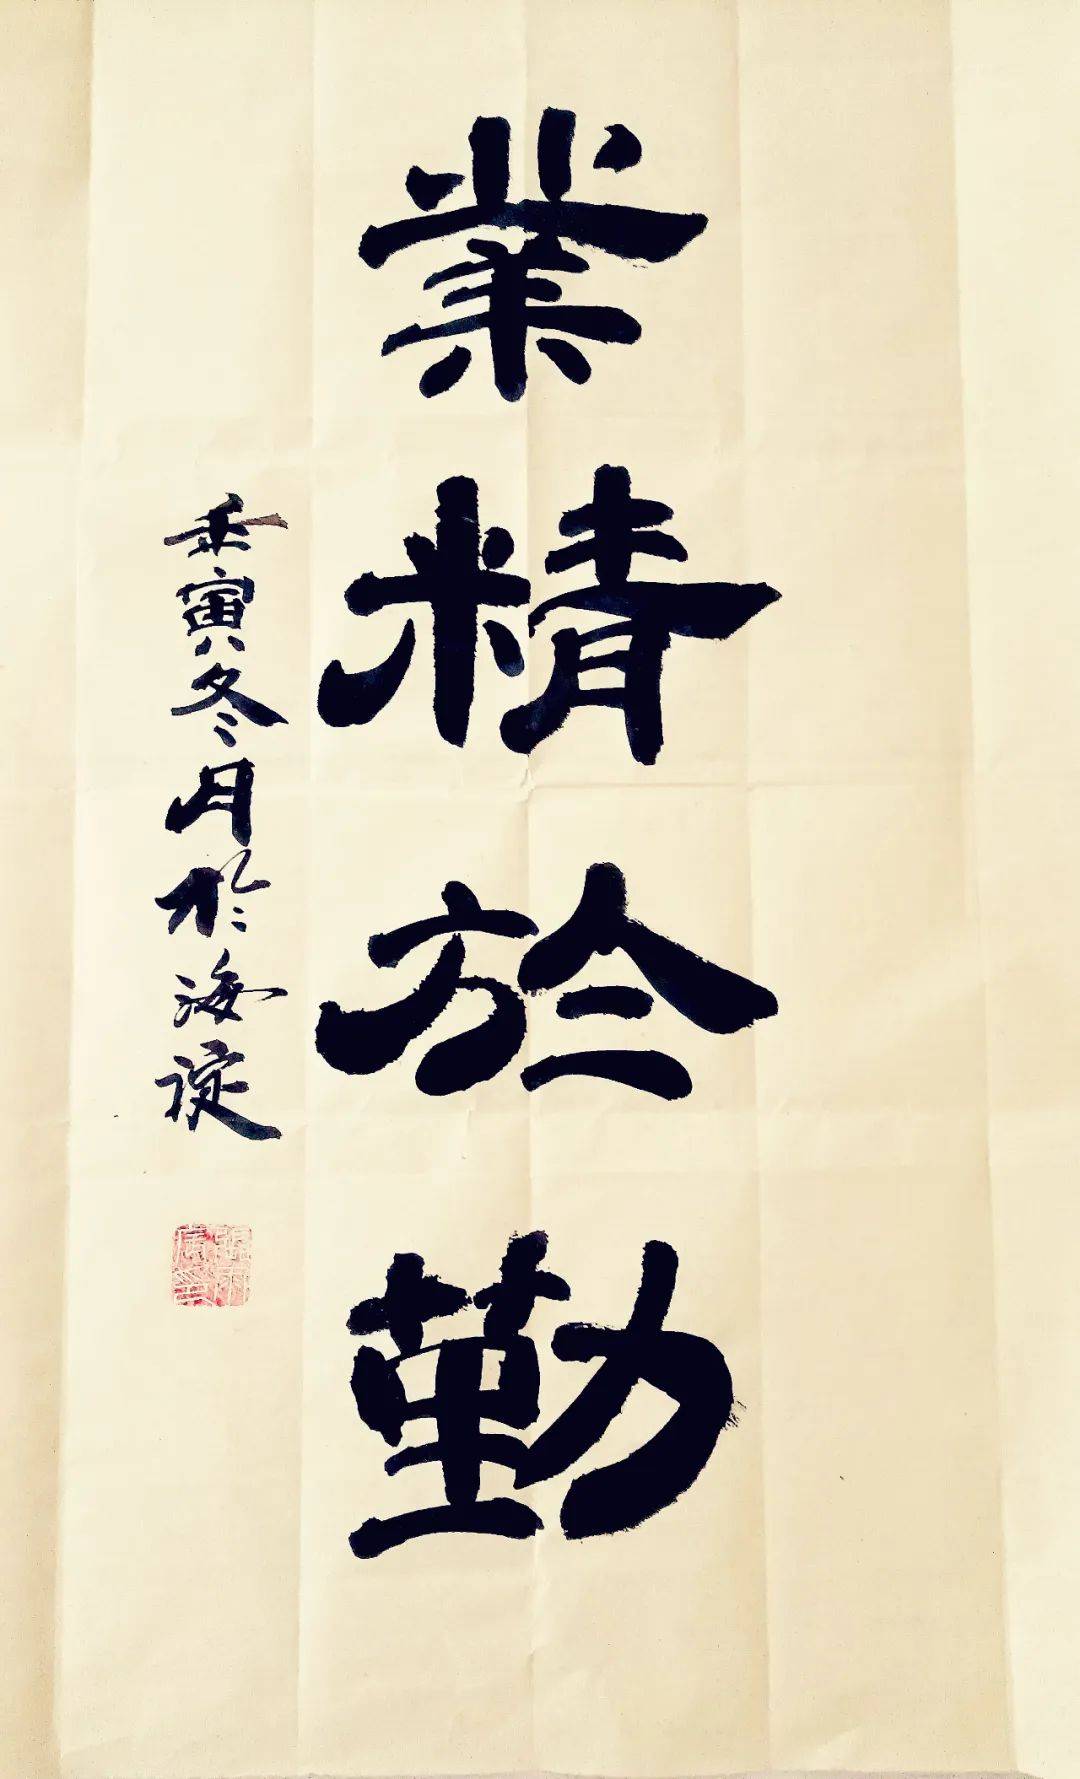 業精於勤
壬寅冬月於海淀